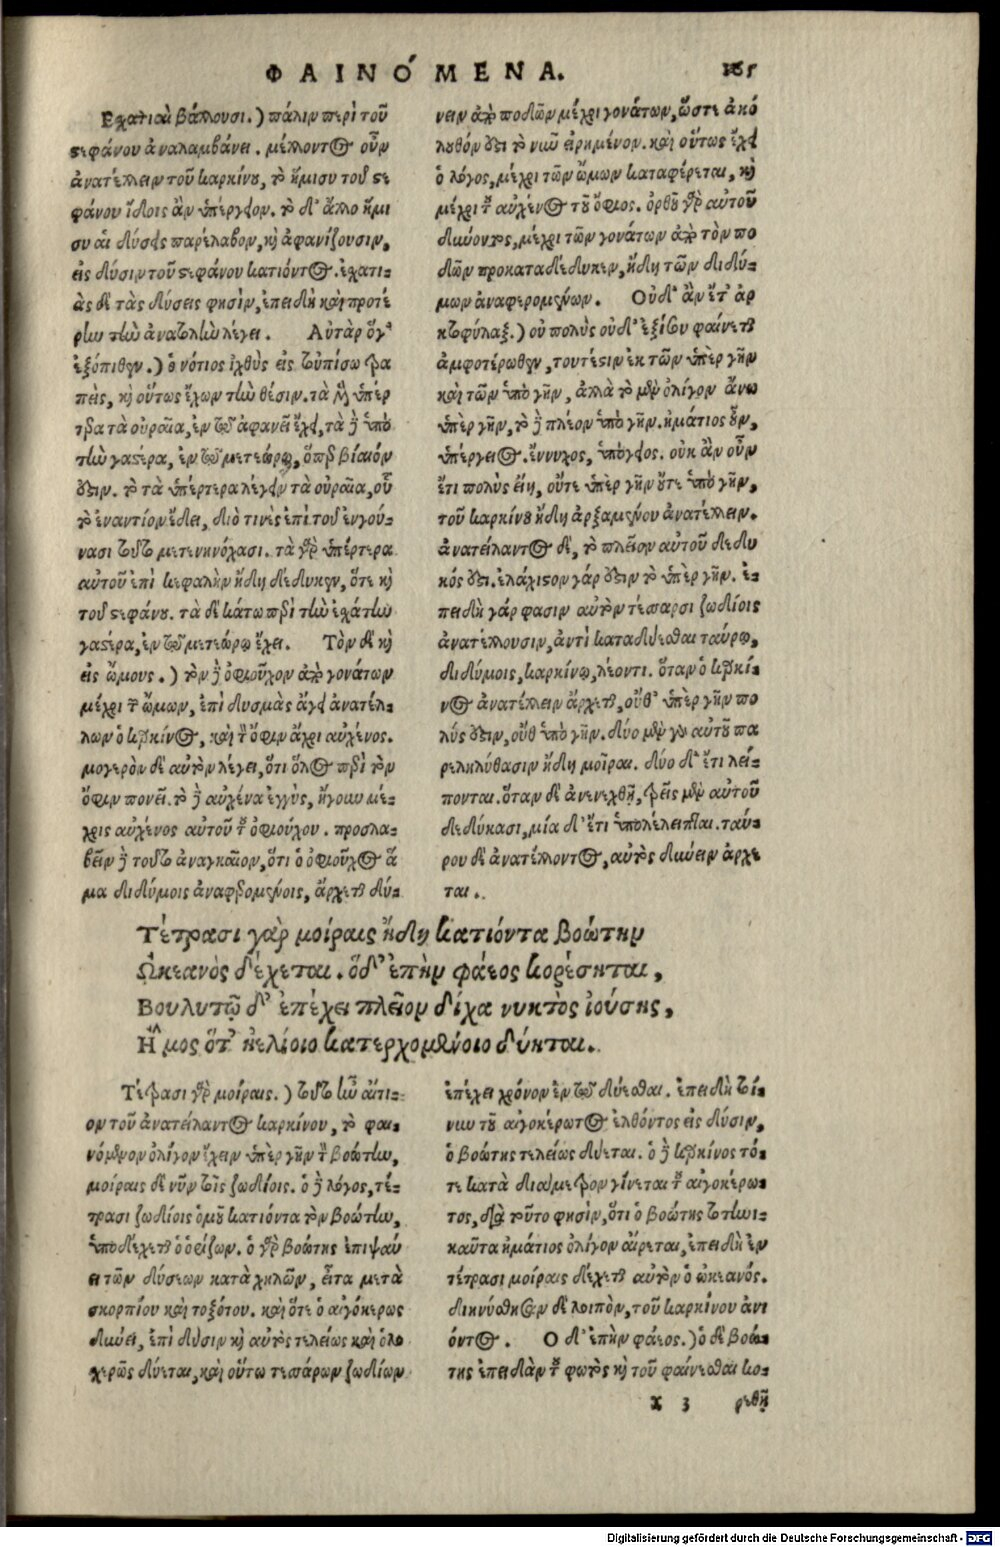 ΦΑΙΝΟ΄ΜΕΝΑ. 165
Εχατιαὶ βάλλουσι.) πάλιν περὶ τοῦ
στεφάνου ἀναλαμβάνει. μέλλοντος οὖν
ἀνατέλλειν τοῦ καρκίνου, τὸ ἥμισυ τοῦ στε
φάνου ἴδοις ἂν ὑπέργειον. τὸ δ' ἄλλο ἥμι
συ αἱ δύσεις παρέλαβον, καὶ ἀφανίζουσιν,
εἰς δύσιν τοῦ στεφάνου κατιόντος. ἐχατι=
ὰς δὲ τὰς δύσεις φησὶν, ἐπειδὴ καὶ προτέ
ρων τὴν ἀναβολὴν λέγει. Αὐτὰρ ὅγ'
ἐξόπιθεν.) ὁ νότιος ἰχθὺς εἰς τοὐπίσω τρα
πεὶς, καὶ οὕτως ἔχων τὴν θέσιν. τὰ μὲν ὑπέρ
τερα τὰ οὐραῖα, ἐν τῷ ἀφανεῖ ἔχει, τὰ δὲ ὑπὸ
τὴν γαστέρα, ἐν τῷ μετεώρῳ, ὅπερ βίαιόν
ἐστιν. τὸ τὰ ὑπέρτερα λέγειν τὰ οὐραῖα, οὗ
τὸ ἐναντίον ἔδει, διό τινες ἐπὶ τοῦ ἐνγού=
νασι τοῦτο μετενηνόχασι. τὰ γὰρ ὑπέρτερα
αὐτοῦ ἐπὶ κεφαλὴν ἤδη δέδυκεν, ὅτε καὶ
τοῦ στεφάνου. τὰ δὲ κάτω περὶ τὴν ἐχάτην
γαστέρα, ἐν τῷ μετεώρῳ ἔχει. Τὸν δὲ καὶ
εἰς ὤμους.) τὸν δὲ ὀφιοῦχον ἀπὸ γονάτων
μέχρι τῶν ὤμων, ἐπὶ δυσμὰς ἄγει ἀνατέλ=
λων ὁ καρκίνος, καὶ τὸν ὄφιν ἄχρι αὐχένος.
μογερὸν δὲ αὐτὸν λέγει, ὅτι ὅλος περὶ τὸν
ὄφιν πονεῖ. τὸ δὲ αὐχένα ἐγγὺς, ἤγουν μέ=
χρις αὐχένος αὐτοῦ τοῦ ὀφιούχου. προσλα=
βεῖν δὲ τοῦτο ἀναγκαῖον, ὅτι ὁ ὀφιοῦχος ἅ
μα διδύμοις ἀναφερομένοις, ἄρχεται δύ=
νειν ἀπὸ ποδῶν μέχρι γονάτων, ὥστε ἀκό
λουθόν ἐστι τὸ νῦν εἰρημένον. καὶ οὕτως ἔχει
ὁ λόγος, μέχρι τῶν ὤμων καταφέρεται, καὶ
μέχρι τοῦ αὐχένος τοῦ ὄφεως. ὀρθοῦ γὰρ αὐτοῦ
δύνοντος, μέχρι τῶν γονάτων ἀπὸ τῶν πο
δῶν προκαταδέδυκεν, ἤδη τῶν διδύ=
μων ἀναφερομένων. Οὐδ' ἂν ἔτ' ἀρ
κτοφύλαξ.) οὐ πολὺς οὐδ' ἐξ ἴσου φαίνεται
ἀμφοτέρωθεν, τουτέστιν ἐκ τῶν ὑπὲρ γῆν
καὶ τῶν ὑπὸ γῆν, ἀλλὰ τὸ μὲν ὀλίγον ἄνω
ὑπὲρ γῆν, τὸ δὲ πλέον ὑπὸ γῆν. ἠμάτιος οὖν,
ὑπέργειος. ἔννυχος, ὑπόγειος. οὐκ ἂν οὖν
ἔτι πολὺς εἴη, οὔτε ὑπὲρ γῆν οὔτε ὑπὸ γῆν,
τοῦ καρκίνου ἤδη ἀρξαμένου ἀνατέλλειν.
ἀνατείλαντος δὲ, τὸ πλεῖον αὐτοῦ δεδυ
κός ἐστι. ἐλάχιστον γάρ ἐστιν τὸ ὑπὲρ γῆν. ἐ=
πειδὴ γάρ φασιν αὐτὸν τέσσαρσι ζωδίοις
ἀνατέλλουσιν, ἀντικαταδύεσθαι ταύρῳ,
διδύμοις, καρκίνῳ, λέοντι. ὅταν ὁ καρκί=
νος ἀνατέλλειν ἄρχεται, οὔθ' ὑπὲρ γῆν πο
λύς ἐστιν, οὔθ' ὑπὸ γῆν. δύο μὲν γὰρ αὐτοῦ πα
ρεληλύθασιν ἤδη μοῖραι. δύο δ' ἔτι λεί=
πονται. ὅταν δὲ ἀνενεχθῇ, τρεῖς μὲν αὐτοῦ
δεδύκασι, μία δ' ἔτι ὑπολέλειπται. ταύ=
ρου δὲ ἀνατέλλοντος, αὐτὸς δύνειν ἄρχε
ται.
Τέτρασι γὰρ μοίραις ἤδη κατιόντα βοώτην
Ὠκεανὸς δέχεται. ὅδ' ἐπὴν φάεος κορέσηται,
Βουλυτῷ δ' ἐπέχει πλεῖον δίχα νυκτὸς ἰούσης,
Η῏μος ὅτ' ἠελίοιο κατερχομένοιο δύηται.
Τέτρασι γὰρ μοίραις.) τοῦτο ἦν αἴτι=
ον τοῦ ἀνατείλαντος καρκίνου, τὸ φαι=
νόμενον ὀλίγον ἔχειν ὑπὲρ γῆν τὸν βοώτην,
μοίραις δὲ νῦν τοῖς ζωδίοις. ὁ δὲ λόγος, τέ=
τρασι ζωδίοις ὁμοῦ κατιόντα τὸν βοώτην,
ὑποδέχεται ὁ ὁρίζων. ὁ γὰρ βοώτης ἐπιψαύ
ει τῶν δύσεων κατὰ χηλῶν, εἶτα μετὰ
σκορπίου καὶ τοξότου. καὶ ὅτε ὁ αἰγόκερως
δύνει, ἐπὶ δύσιν καὶ αὐτὸς τελείως καὶ ὁλο
χερῶς δύεται, καὶ οὕτω τεσσάρων ζωδίων
ἐπέχει χρόνον ἐν τῷ δύεσθαι. ἐπειδὴ τοί=
νυν τοῦ αἰγοκέρωτος ἐλθόντος εἰς δύσιν,
ὁ βοώτης τελείως δύεται. ὁ δὲ καρκίνος τό=
τε κατὰ διάμετρον γίνεται τοῦ αἰγοκέρω=
τος, διὰ τοῦτο φησὶν, ὅτι ὁ βοώτης τοτηνι=
καῦτα ἠμάτιος ὀλίγον αἴρεται, ἐπειδὴ ἐν
τέτρασι μοίραις δέχεται αὐτὸν ὁ ὠκεανός.
δεικνύσθωσαν δὲ λοιπὸν, τοῦ καρκίνου ἀνι
όντος. Ο δ' ἐπὴν φάεος.) ὁ δὲ βοώ=
της ἐπειδὰν τοῦ φωτὸς καὶ τοῦ φαίνεσθαι κο=
x 3 ρεθῇ
Digitalisierung gefördert durch die Deutsche Forschungsgemeinschaft - DFG